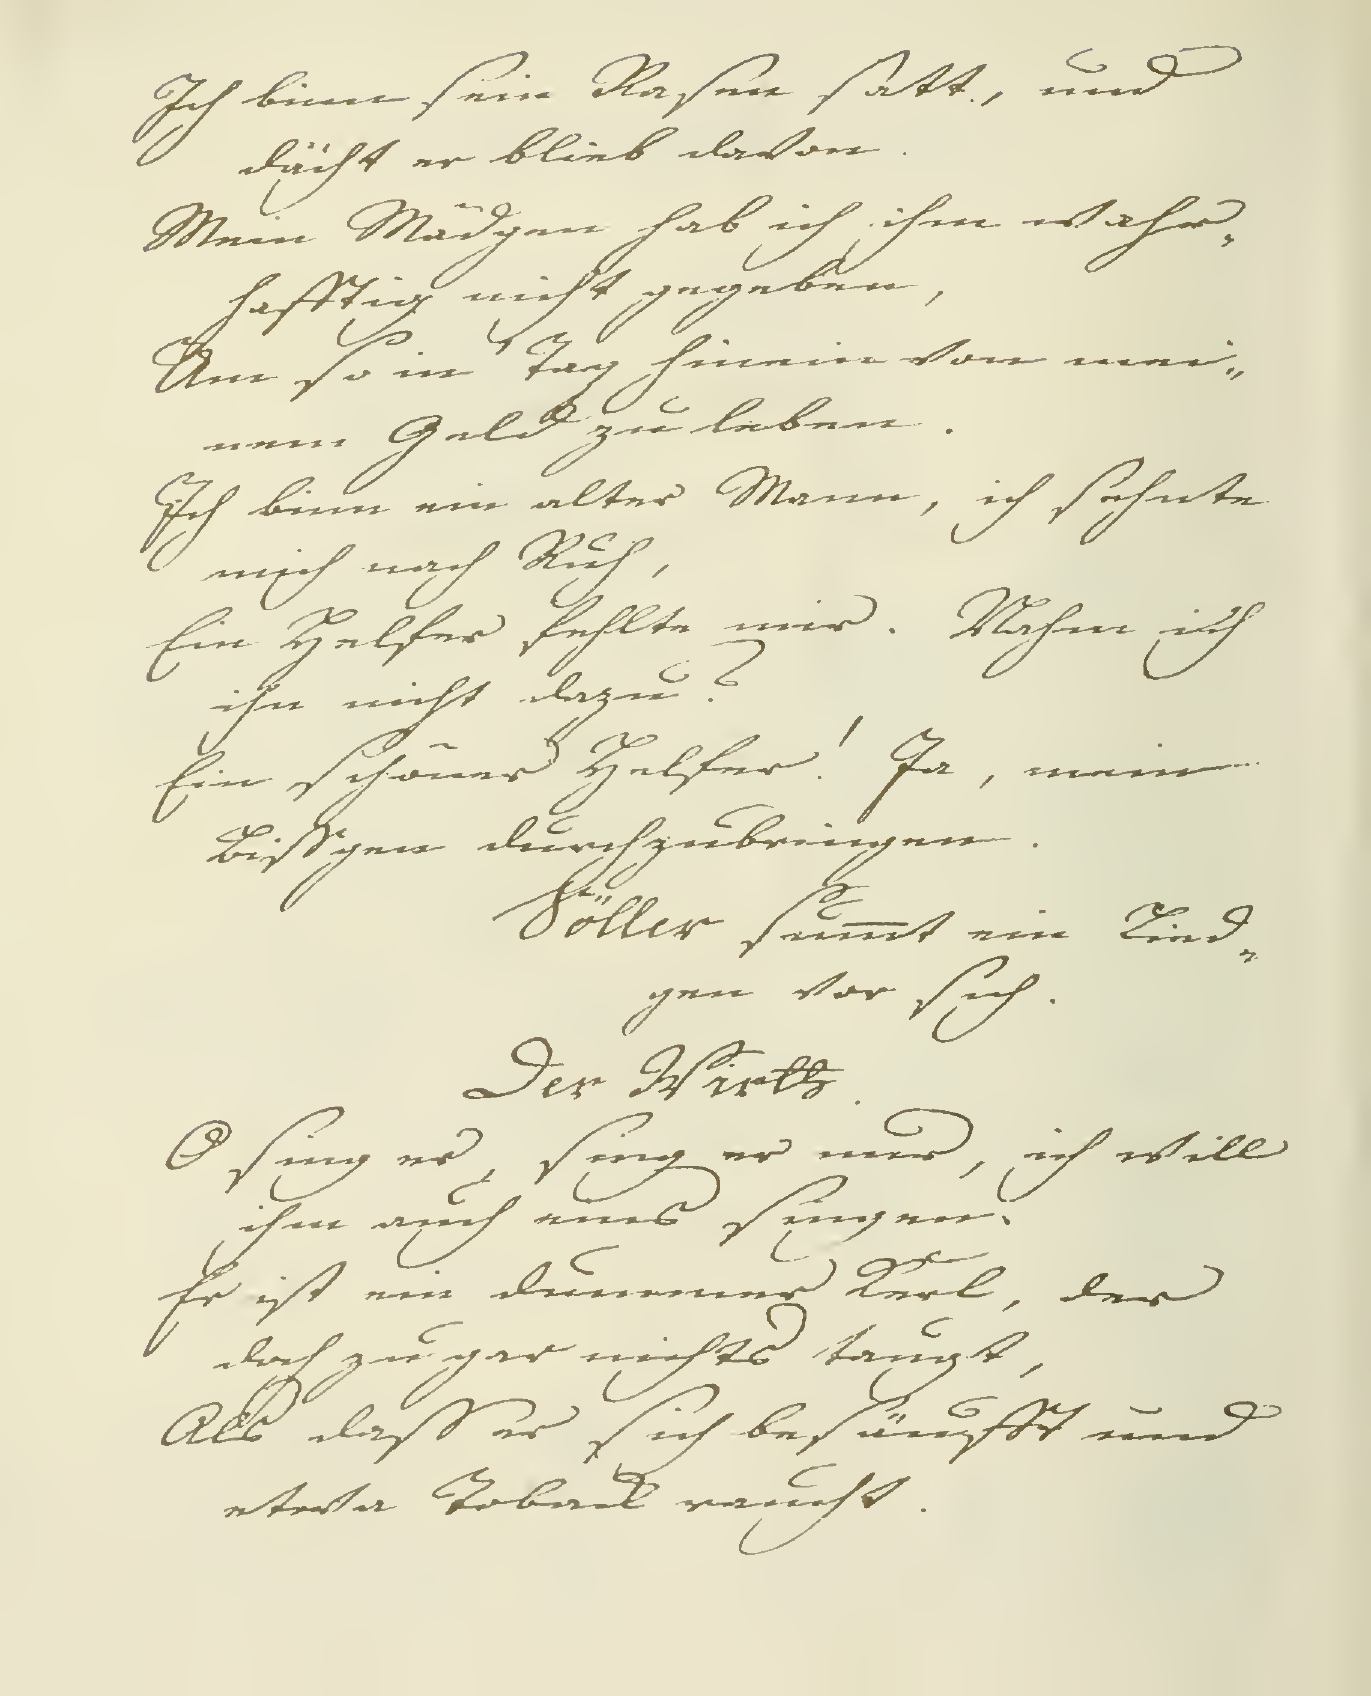 Ich binn sein Rasen satt, und
dächt er blieb davon.
Mein Mädgen hab ich ihm wahr-
hafftig nicht gegeben,
Um so in Tag hinein von mei-
nem Geld zu leben.
Ich binn ein alter Mann, ich sehnte
mich nach Ruh,
Ein Helfer fehlte mir. Nahm ich
ihn nicht dazu?
Ein schöner Helfer! Ja, mein
Bissgen durchzubringen.
Söller summt ein Lied-
gen vor sich.
Der Wirth.
O sing er, sing er nur, ich will
ihm auch eins singen.
Er ist ein dummer Kerl, der
doch zu gar nichts taugt,
Als dass er sich besäufft und
etwa Toback raucht.